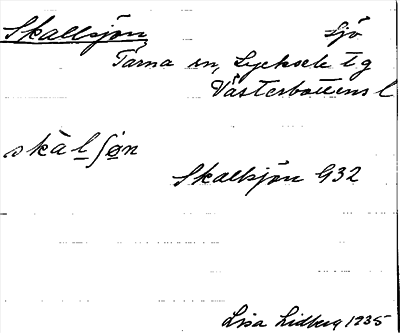 Skallsjön Sjö
Tärna sn, Lycksele tg
Västerbottens l
skàl ʃøn
Skallsjön G32
Lisa Lidberg 1935